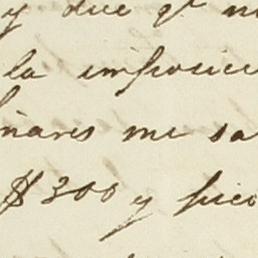 y dice qe n
la imposici
inares me sa
$300 y pico